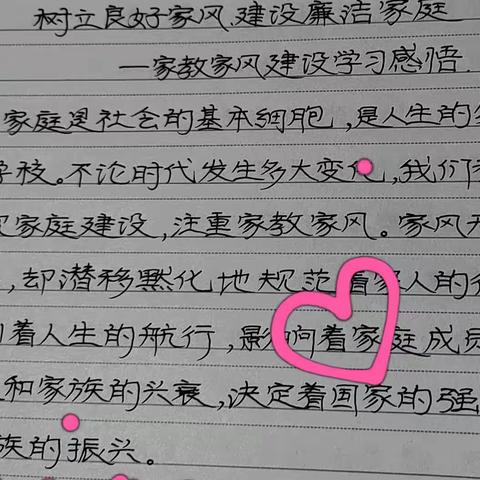 树立良好家风,建设廉洁家庭
—家教家风建设学习感悟.
家庭是社会的基本细胞,是人生的
学校。不论时代发生多大变化,我们
家庭建设,注重家教家风。家风
,却潜移默化地规范着家人的
着人生的航行,影响着家庭成
和家族的兴衰,决定着国家的强
族的振兴。